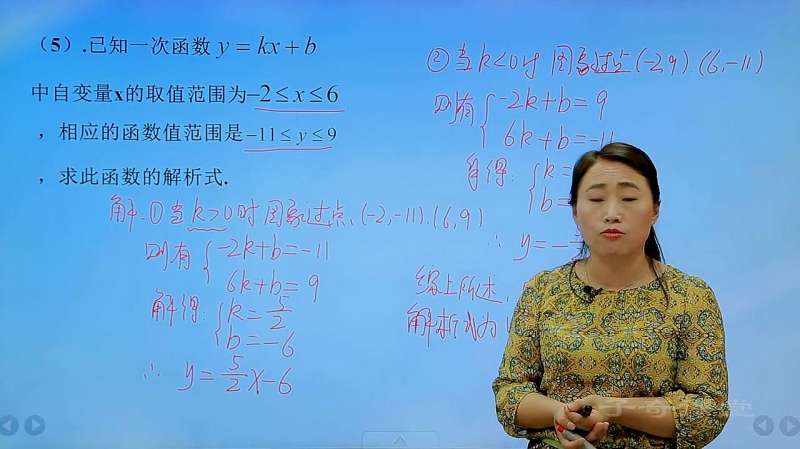 （5）.已知一次函数 y = kx + b
中自变量x的取值范围为 −2 ≤ x ≤ 6
，相应的函数值范围是 −11 ≤ y ≤ 9
，求此函数的解析式.
解：①当k>0时 图象过点(-2,-11).(6,9)
则有{-2k+b=-11
6k+b=9
解得：{k=5/2
b=-6
∴ y=5/2x-6
②当k<0时 图象过点(-2,9)(6,-11)
则有{-2k+b=9
6k+b=-11
解得：{k=
b=
∴ y=-
综上所述，
解析式为